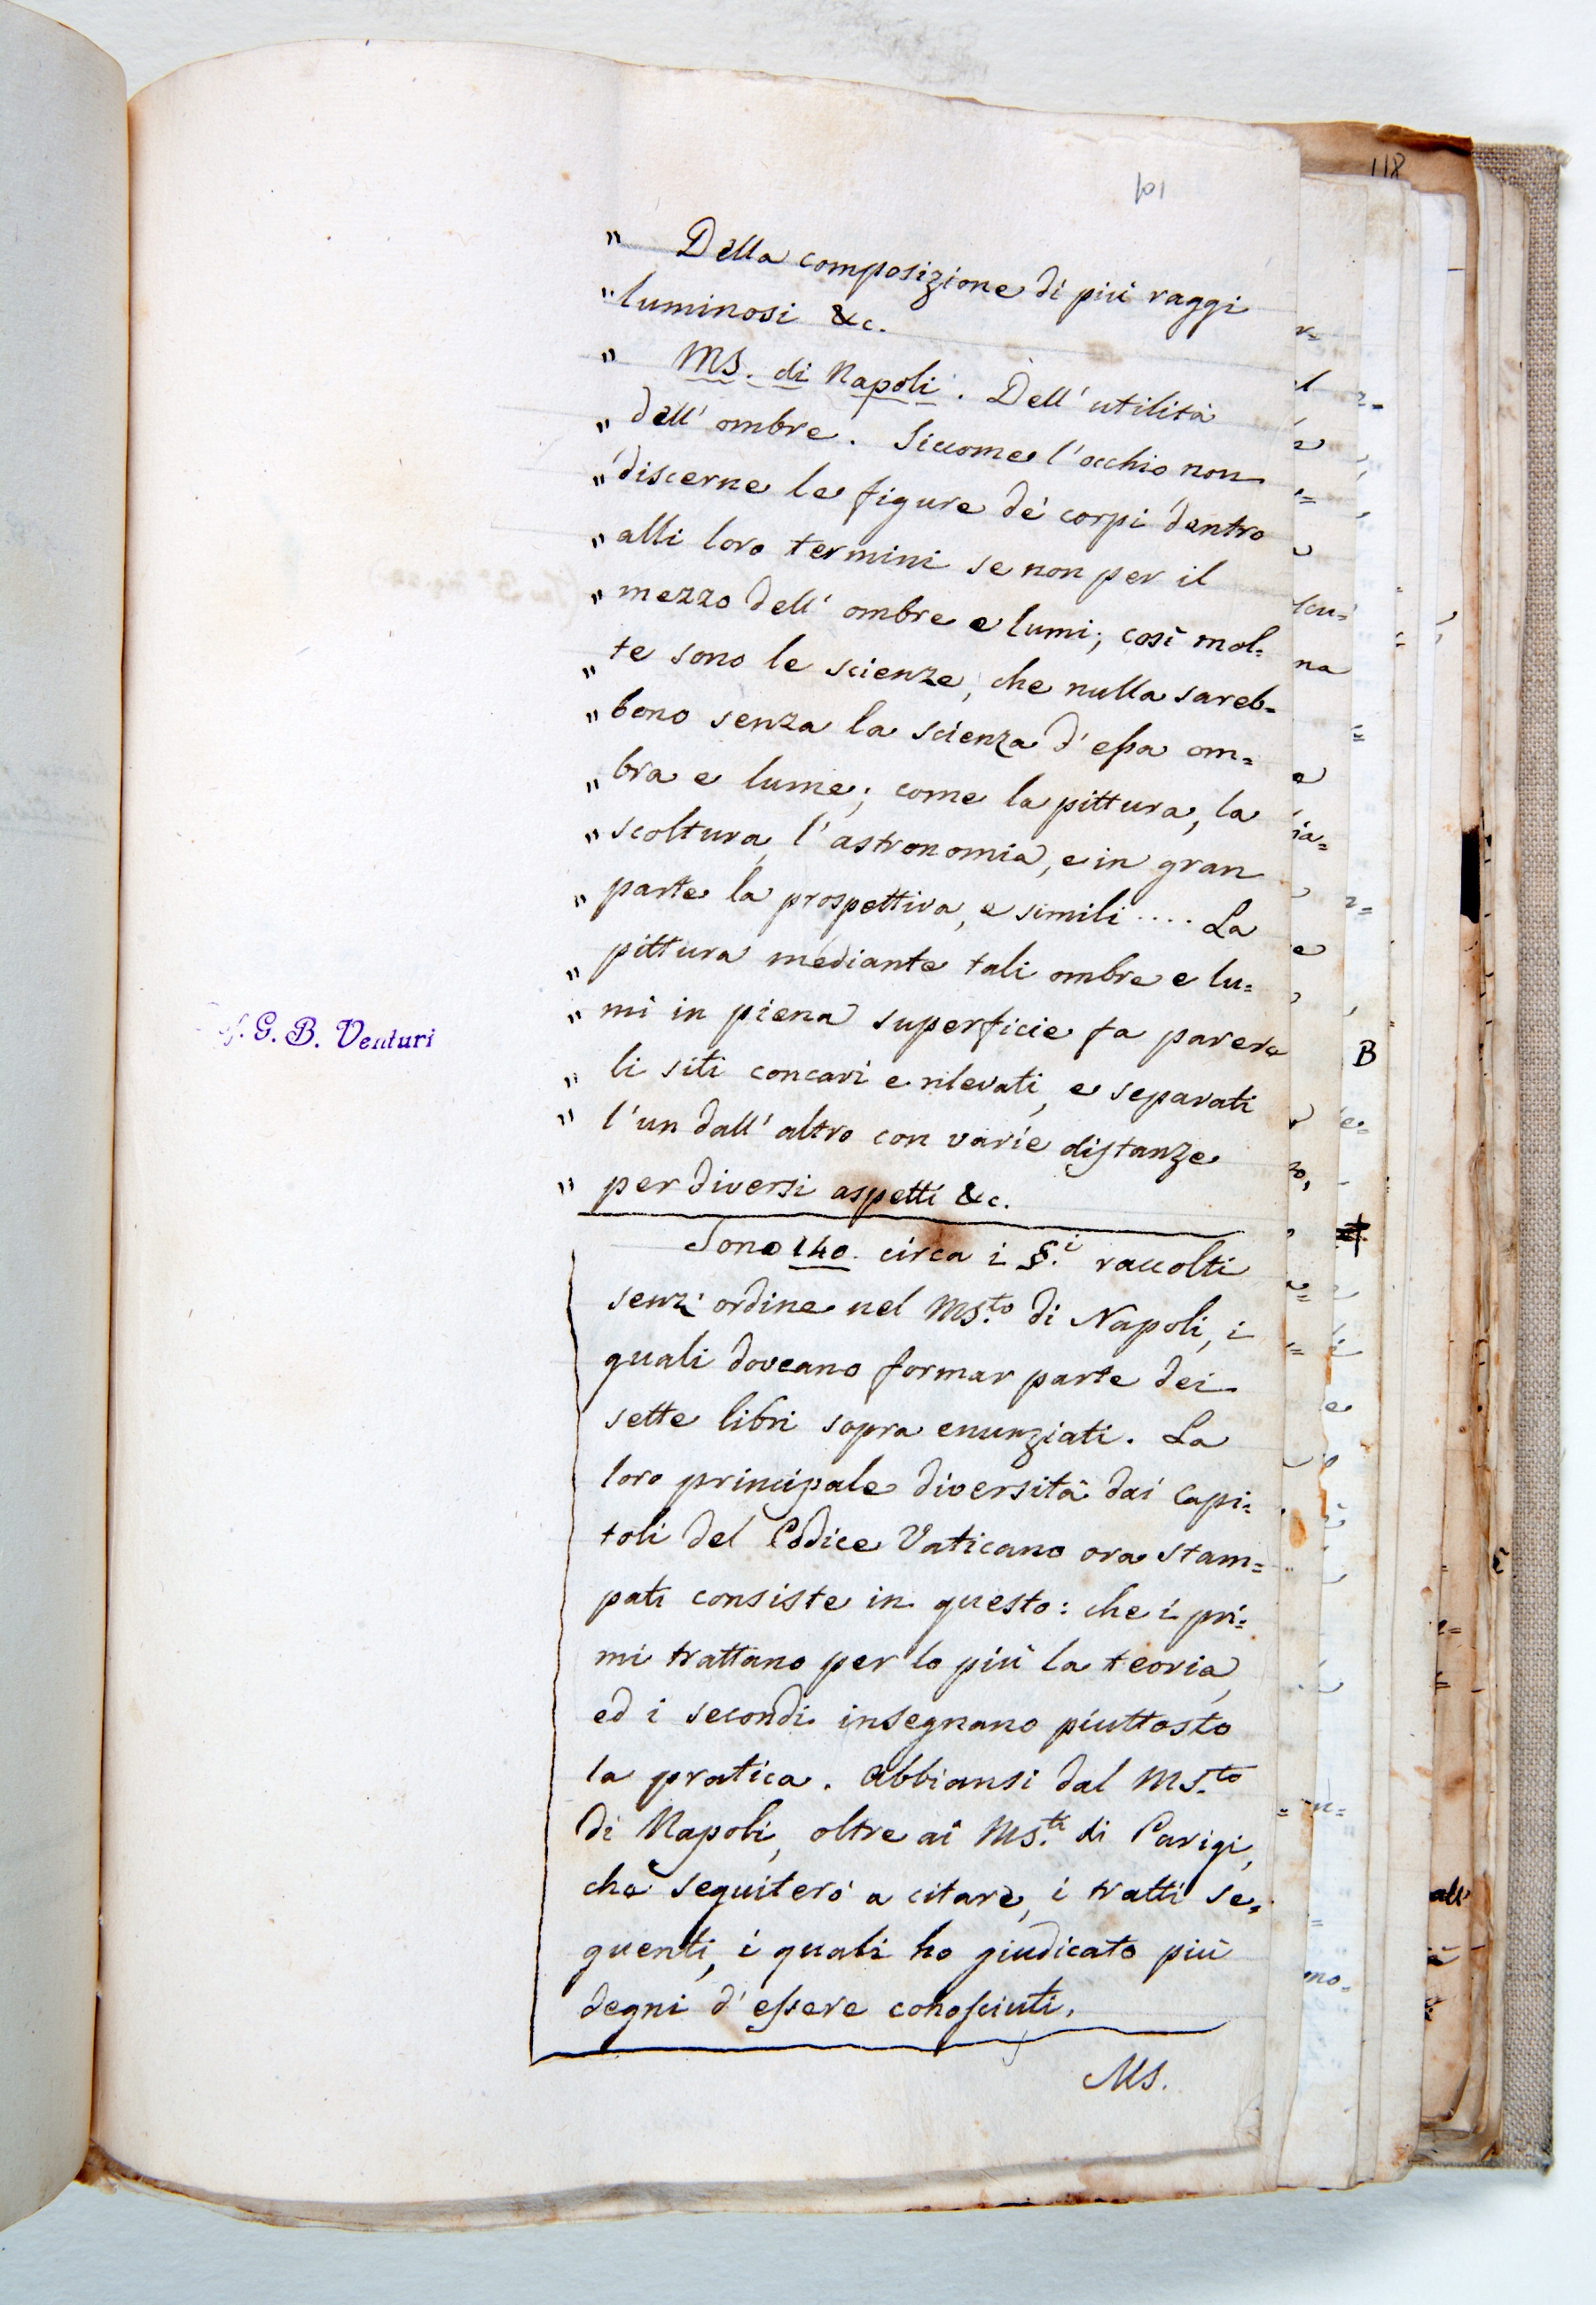 101
118
" Della composizione di più raggi
" luminosi &c.
" MS. di Napoli. Dell' utilità
" dell' ombre. Siccome l'occhio non
" discerne le figure de' corpi dentro
" alli loro termini se non per il
" mezzo dell' ombre e lumi; così mol=
" te sono le scienze, che nulla sareb=
" bono senza la scienza d'essa om=
" bra e lume; come la pittura, la
" scoltura, l'astronomia, e in gran
" parte la prospettiva, e simili .... La
" pittura mediante tali ombre e lu=
" mi in piena superficie fa parere
" li siti concavi e rilevati, e separati
" l'un dall' altro con varie distanze
" per diversi aspetti &c.
Sono 140. circa i §.i raccolti
senz' ordine nel MS.to di Napoli, i
quali doveano formar parte dei
sette libri sopra enunziati. La
loro principale diversità dai capi=
toli del Codice Vaticano ora stam=
pati consiste in questo: che i pri=
mi trattano per lo più la teoria,
ed i secondi insegnano piuttosto
la pratica. Abbiansi dal MS.to
di Napoli, oltre ai MS.ti di Parigi,
che seguiterò a citare, i tratti se=
guenti, i quali ho giudicato più
degni d'essere conosciuti.
MS.
G. B. Venturi
B